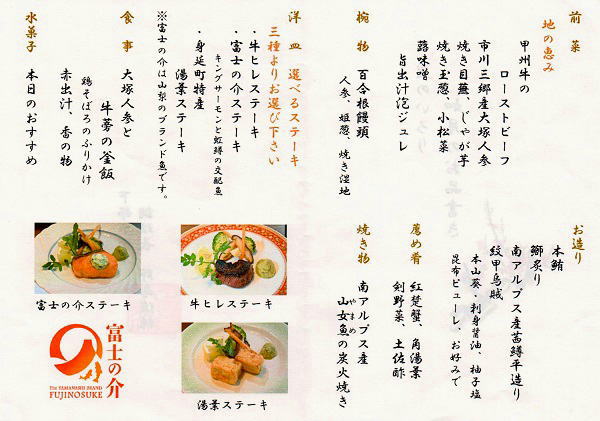 前菜
地の恵み
甲州牛の
ローストビーフ
市川三郷産大塚人参
焼き目蕪、じゃが芋
焼き玉葱、小松菜
蕗味噌
旨出汁泡ジュレ
椀物
百合根饅頭
人参、姫葱、焼き湿地
洋皿
選べるステーキ
三種よりお選び下さい
・牛ヒレステーキ
・富士の介ステーキ
キングサーモンと虹鱒の交配魚
・身延町特産
湯葉ステーキ
※富士の介は山梨のブランド魚です。
食事
大塚人参と
牛蒡の釜飯
鶏そぼろのふりかけ
赤出汁、香の物
水菓子
本日のおすすめ
お造り
本鮪
鰤炙り
南アルプス産茜鱒平造り
紋甲烏賊
本山葵・刺身醤油、柚子塩
昆布ピューレ、お好みで
薦め肴
紅楚蟹、角湯葉
剣野菜、土佐酢
焼き物
南アルプス産
山女魚の炭火焼き
やまめ
富士の介ステーキ
牛ヒレステーキ
湯葉ステーキ
富士の介
The YAMANASHI BRAND
FUJINOSUKE